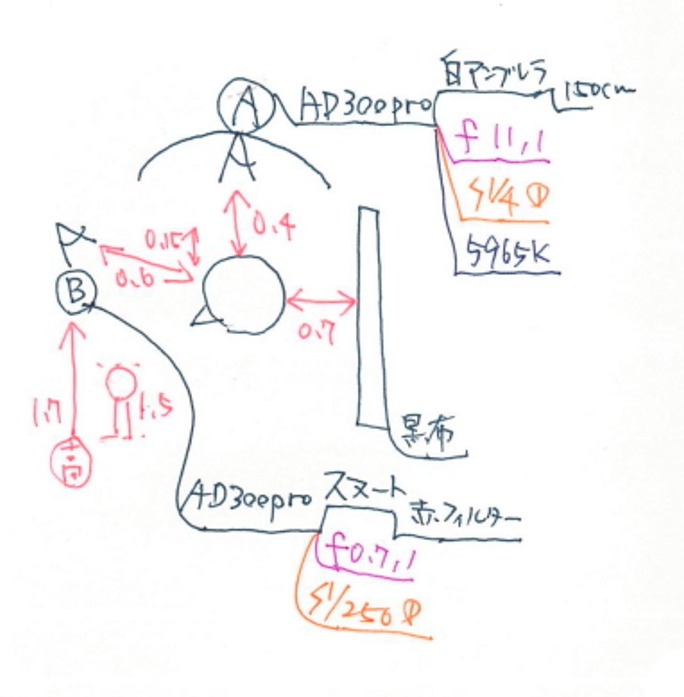 A
AD300pro
白アンブレラ
150cm
f 11,1
S1/4
5965K
0.15
0.4
0.6
B
0.7
1.7
1.5
高
黒布
AD300pro
スヌート
赤フィルター
f0.7,1
S1/250